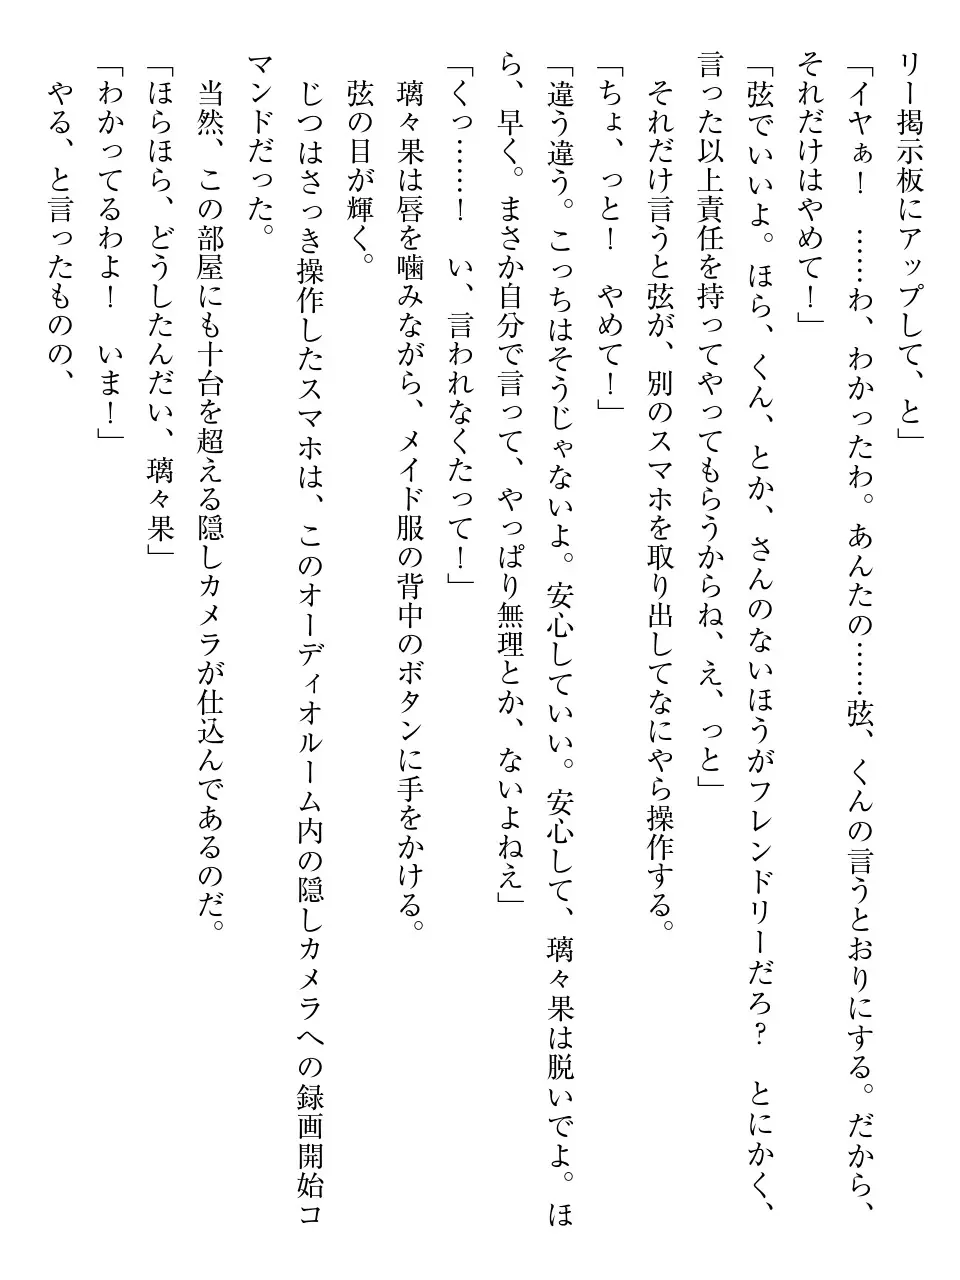 リー掲示板にアップして、と」
「イヤぁ！　……わ、わかったわ。あんたの……弦、くんの言うとおりにする。だから、
それだけはやめて！」
「弦でいいよ。ほら、くん、とか、さんのないほうがフレンドリーだろ？　とにかく、
言った以上責任を持ってやってもらうからね、え、っと」
　それだけ言うと弦が、別のスマホを取り出してなにやら操作する。
「ちょ、っと！　やめて！」
「違う違う。こっちはそうじゃないよ。安心していい。安心して、璃々果は脱いでよ。ほ
ら、早く。まさか自分で言って、やっぱり無理とか、ないよねえ」
「くっ……！　い、言われなくたって！」
　璃々果は唇を噛みながら、メイド服の背中のボタンに手をかける。
　弦の目が輝く。
　じつはさっき操作したスマホは、このオーディオルーム内の隠しカメラへの録画開始コ
マンドだった。
　当然、この部屋にも十台を超える隠しカメラが仕込んであるのだ。
「ほらほら、どうしたんだい、璃々果」
「わかってるわよ！　いま！」
　やる、と言ったものの、